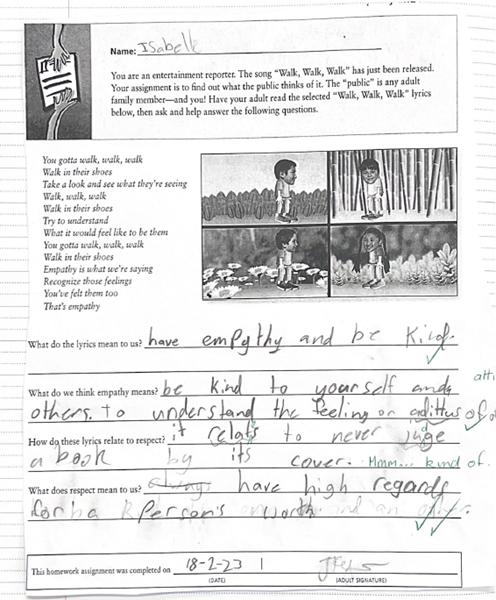 Name: Isabelle
You are an entertainment reporter. The song "Walk, Walk, Walk" has just been released.
Your assignment is to find out what the public thinks of it. The "public" is any adult
family member—and you! Have your adult read the selected "Walk, Walk, Walk" lyrics
below, then ask and help answer the following questions.
You gotta walk, walk, walk
Walk in their shoes
Take a look and see what they're seeing
Walk, walk, walk
Walk in their shoes
Try to understand
What it would feel like to be them
You gotta walk, walk, walk
Walk in their shoes
Empathy is what we're saying
Recognize those feelings
You've felt them too
That's empathy
What do the lyrics mean to us? have empythy and be Kind.
atti
What do we think empathy means? be kind to yourself and
others. to understand the feeling or adittus of
How do these lyrics relate to respect? it relats to never juge
a book by its cover. Mmm... kind of.
What does respect mean to us? have high regards
for a Person's worth
This homework assignment was completed on 18-2-23
(DATE) (ADULT SIGNATURE)